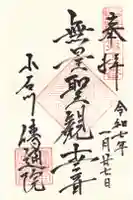 奉拝
令和七年
一月廿七日
無量聖観世音
小石川
傳通院